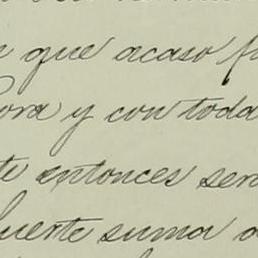 que acaso
ora y con toda
te entonces ser
fuerte suma